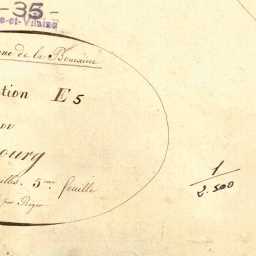 -35-
e-et-Vilaine
de la Bouexière
tion E5
ourg
5me feuille
par
1
2.500